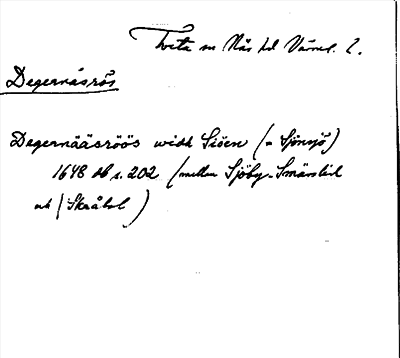 Tveta sn Näs hd Värml. l.
Degernäsrös
Degernääsröös widh Siöen (= Sjönsjö)
1648 db s. 202 (mellan Sjöby-Smårslid
och (Skråbol)